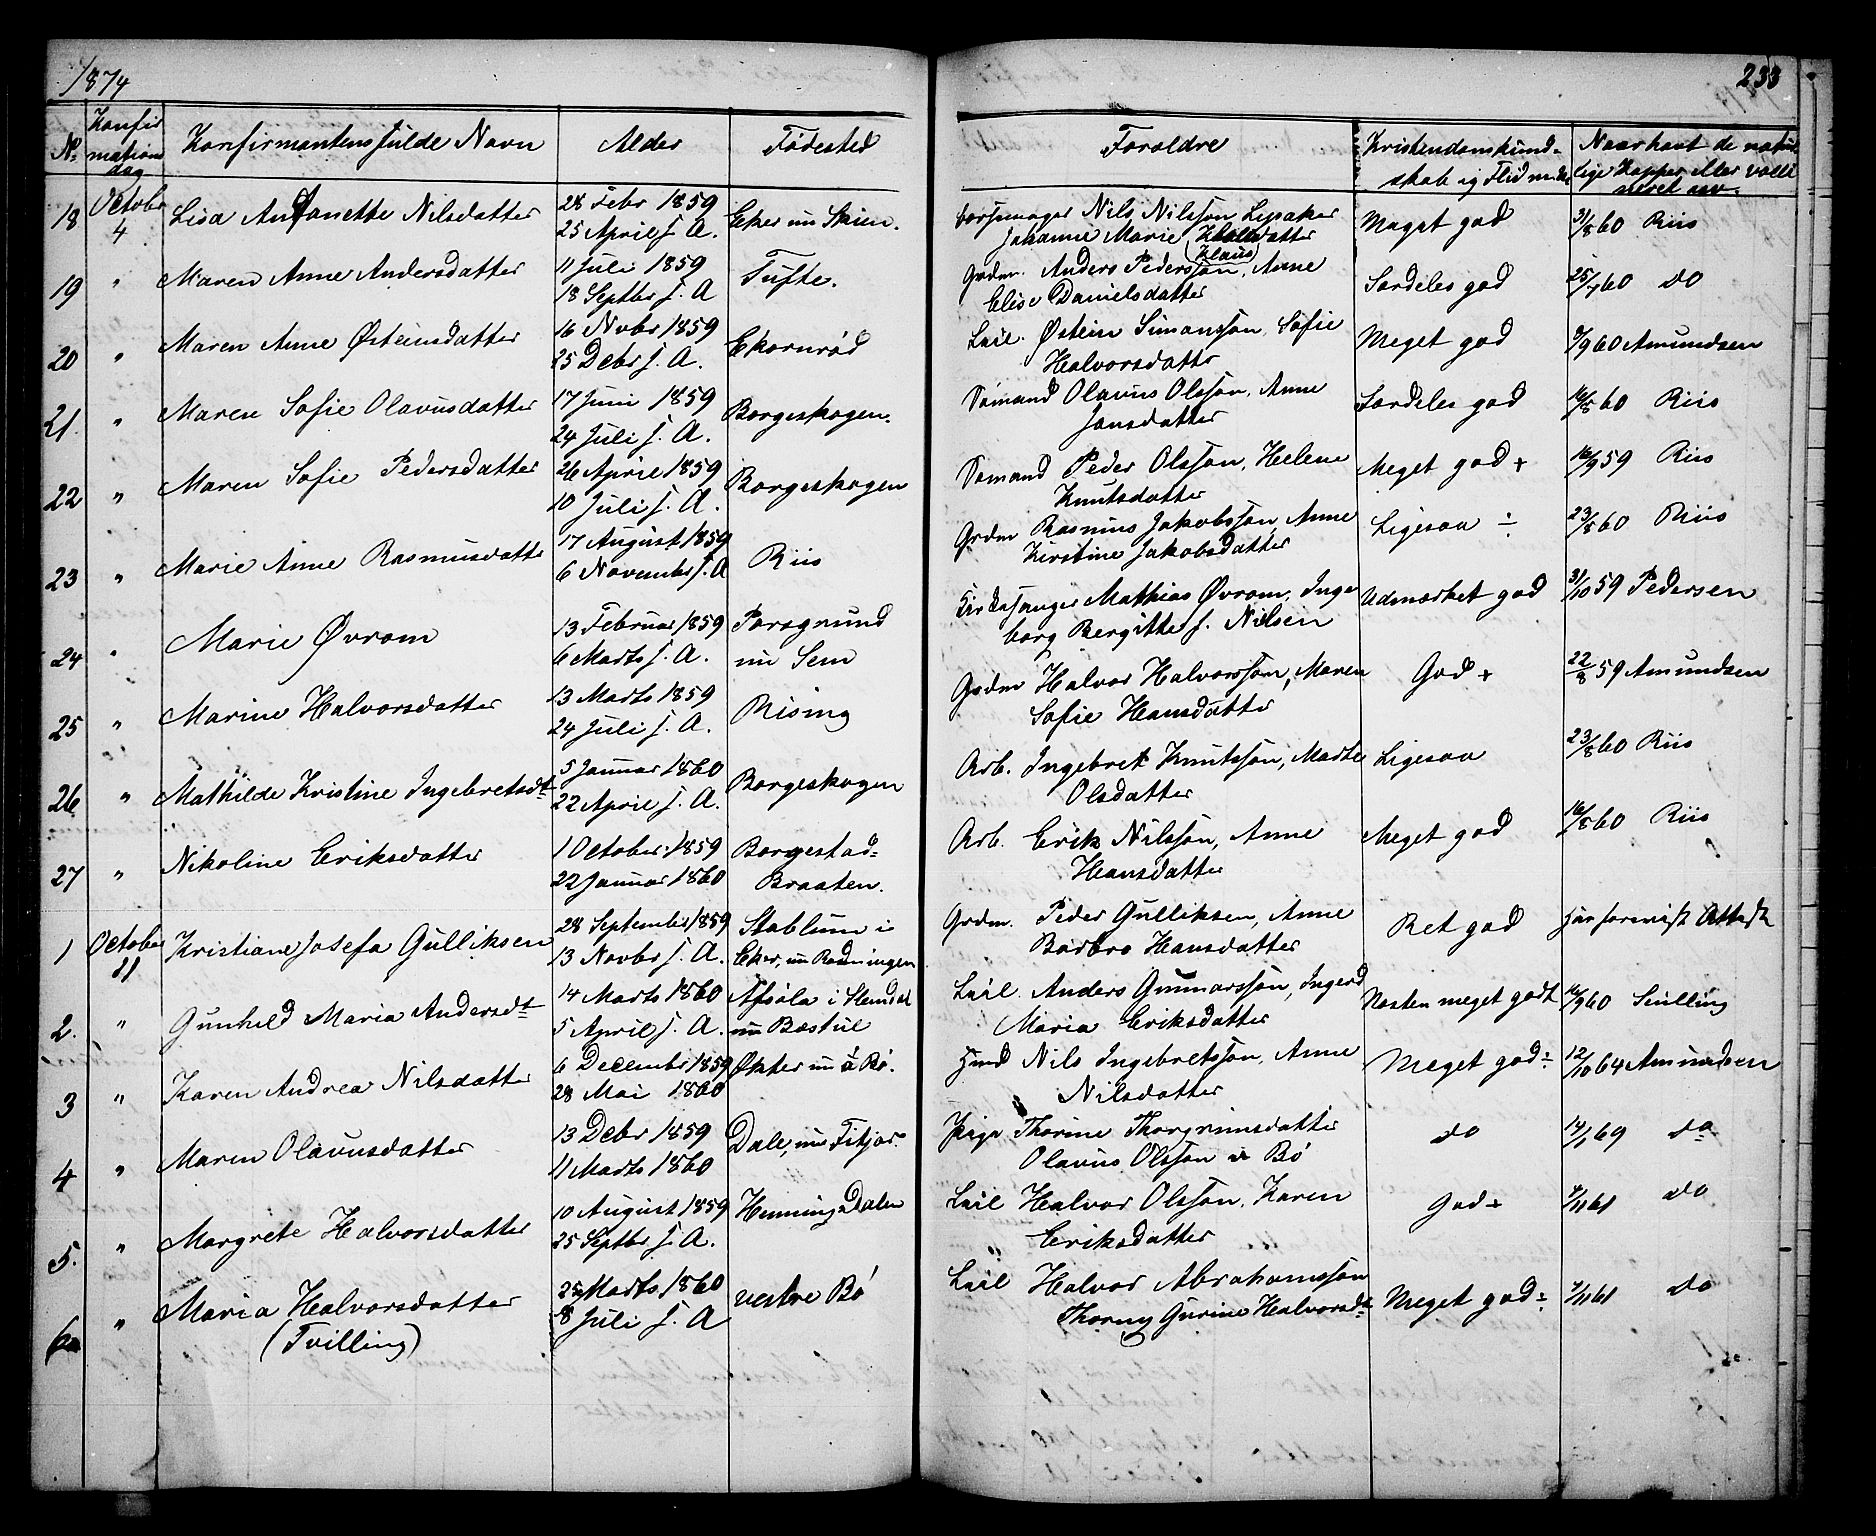 1874
No
Konfirmations dag
Konfirmantens fulde Navn
Alder
Fødested
18 October 4 Lisa Antonette Nilsdatter 28 Febr 1859 Eker nu Skien.
25 April s. A.
19 " Maren Anne Andersdatter 11 Juli 1859 Tufte.
18 Septbr s. A
20 " Maren Anne Østeinsdatter 16 Novbr 1859 Ekornrød
25 Debr s. A.
21. " Maren Sofie Olavusdatter 17 Juni 1859 Borgeskogen.
24 Juli s. A.
22 " Maren Sofie Pedersdatter 26 April 1859 Borgeskogen
10 Juli s. A.
23 " Marie Anne Rasmusdatter 17 August 1859 Riis
6 November s. A
24 " Marie Øvrom 13 Februar 1859 Porsgrund
6 Marts s. A. nu Sem
25 " Marine Halvorsdatter 13 Marts 1859 Rising
24 Juli s. A.
26 " Mathilde Kristine Ingebretsdt 5 Januar 1860 Borgeskogen
22 April s. A.
27 " Nikoline Eriksdatter 1 October 1859 Borgestad-
22 Januar 1860 Braaten.
1 October 11 Kristiane Josefa Gulliksen 28 September 1859 Stablum i
13 Novbr s. A. Eker, nu Rødningen
2. " Gunhild Maria Andersdt 14 Marts 1860 i Slemdal
5 April s. A. nu Bæstul
3 " Karen Andrea Nilsdatter 6 December 1859 Økter nu ø Bø.
28 Mai 1860
4 " Maren Olavusdatter 13 Debr 1859 Dale, nu Fitjar
11 Marts 1860
5. " Margrete Halvorsdatter 10 August 1859 Henningsdalen
25 Septbr s. A.
6a " Maria Halvorsdatter 25 Marts 1860 vestre Bø
(Tvilling) 8 Juli s. A
233
Forældre
Kristendomskund-
skab og Flid m.m.
Naar havt de natur
lige Kopper eller vacci
neret osv.
Børsemager Nils Nilssøn Lysaker Meget god 31/8 60 Riis
Johanne Marie datter
(Klaus)
Grdm. Anders Pederssøn, Anne Særdeles god 25/7 60 do
Elise Danielsdatter
Leil. Østein Simonssøn, Sofie Meget god 9/9 60 Amundsen
Halvorsdatter
Sømand Olavus Olssøn, Anne Særdeles god 16/8 60 Riis
Jansdatter
Sømand Peder Olssøn, Helene Meget god + 16/9 59 Riis
Knutsdatter
Grdm Rasmus Jakobssøn, Anne Ligesaa ÷ 23/8 60 Riis
Kirstine Jakobsdatter
Kirkesanger Mathias Øvrom, Inge Udmærket god 31/10 59 Pedersen
borg Bergitte f. Nilsen
Grdm Halvor Halvorssøn, Maren God + 22/8 59 Amundsen
Sofie Hansdatter
Arb. Ingebret Knutssøn, Marthe Ligesaa 23/8 60 Riis
Olsdatter
Arb. Erik Nilssøn, Anne Meget god 16/8 60 Riis
Hansdatter
Grdm. Peder Gulliksen, Anne Ret god har forevist Attest
Barbro Hansdatter
Leil. Anders Gunnarssøn, Ingerd Næsten meget godt 16/9 60
Maria Eriksdatter
Hmd Nils Ingebretssøn, Anne Meget god ÷ 12/10 64 Amundsen
Nilsdatter
Pige Thorine Thorgrimsdatter do 14/1 69 do
Olavus Olssøn ø Bø
Leil Halvor Olssøn, Karen God + 7/11 61 do
Eriksdatter
Leil Halvor Abrahamssøn Meget god ÷ 7/11 61 do
Thorny Gurine Halvorsdt